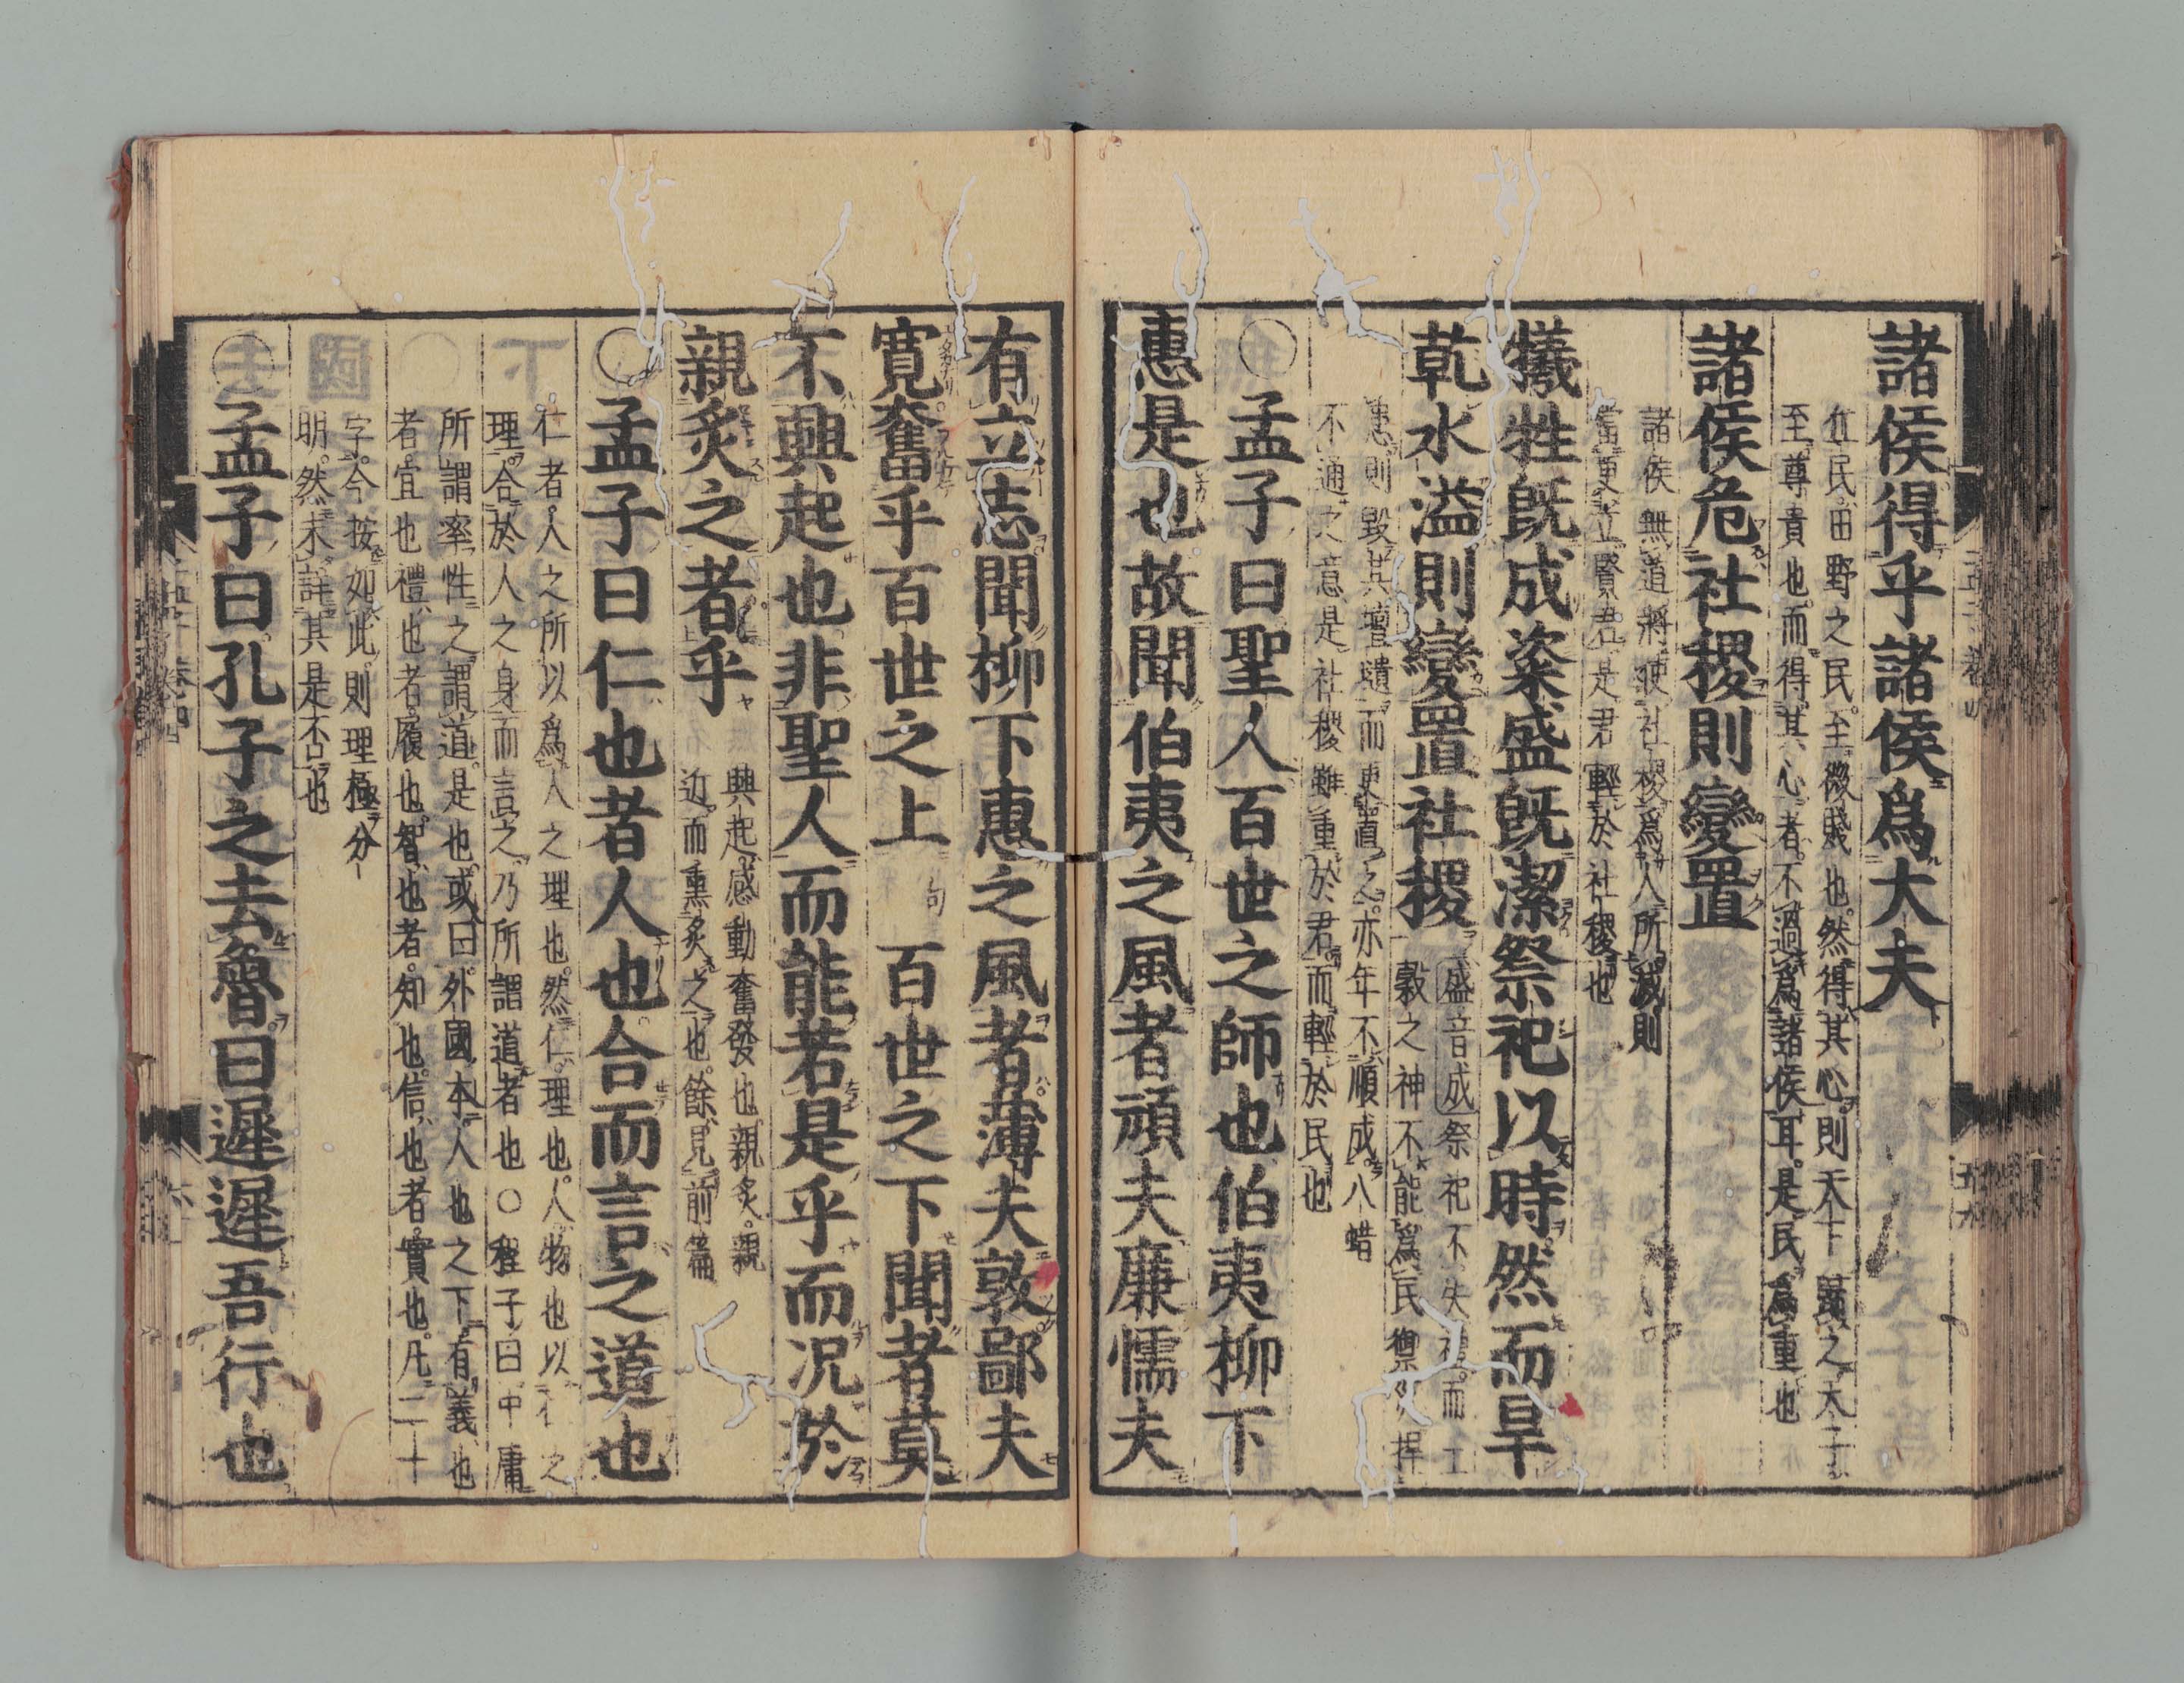 諸侯得乎諸侯爲大夫
丘民田野之民至微賤也然得其心則天下歸之天子
至尊貴也而得其心者不過爲諸侯耳是民爲重也
諸侯危社稷則變置
諸侯無道將使社稷爲人所滅則
當更立賢君是君輕於社稷也
犠牲旣成粢盛旣潔祭祀以時然而旱
乾水溢則變置社稷
盛音成祭祀不失禮而土
穀之神不能爲民禦災捍
患則毀其壇壝而更置之亦年不順成八蜡
不通之意是社稷雖重於君而輕於民也
○孟子曰聖人百世之師也伯夷柳下
惠是也故聞伯夷之風者頑夫廉懦夫
有立志聞柳下惠之風者薄夫敦鄙夫
寬奮乎百世之上句百世之下聞者莫
不興起也非聖人而能若是乎而况於
親炙之者乎
興起感動奮發也親炙親
近而熏炙之也餘見前篇
○孟子曰仁也者人也合而言之道也
仁者人之所以爲人之理也然仁理也人物也以仁之
理合於人之身而言之乃所謂道者也○程子曰中庸
所謂率性之謂道是也或曰外國本人也之下有義也
者宜也禮也者履也智也者知也信也者實也凡二十
字今按如此則理極分
明然未詳其是否也
○孟子曰孔子之去魯曰遲遲吾行也